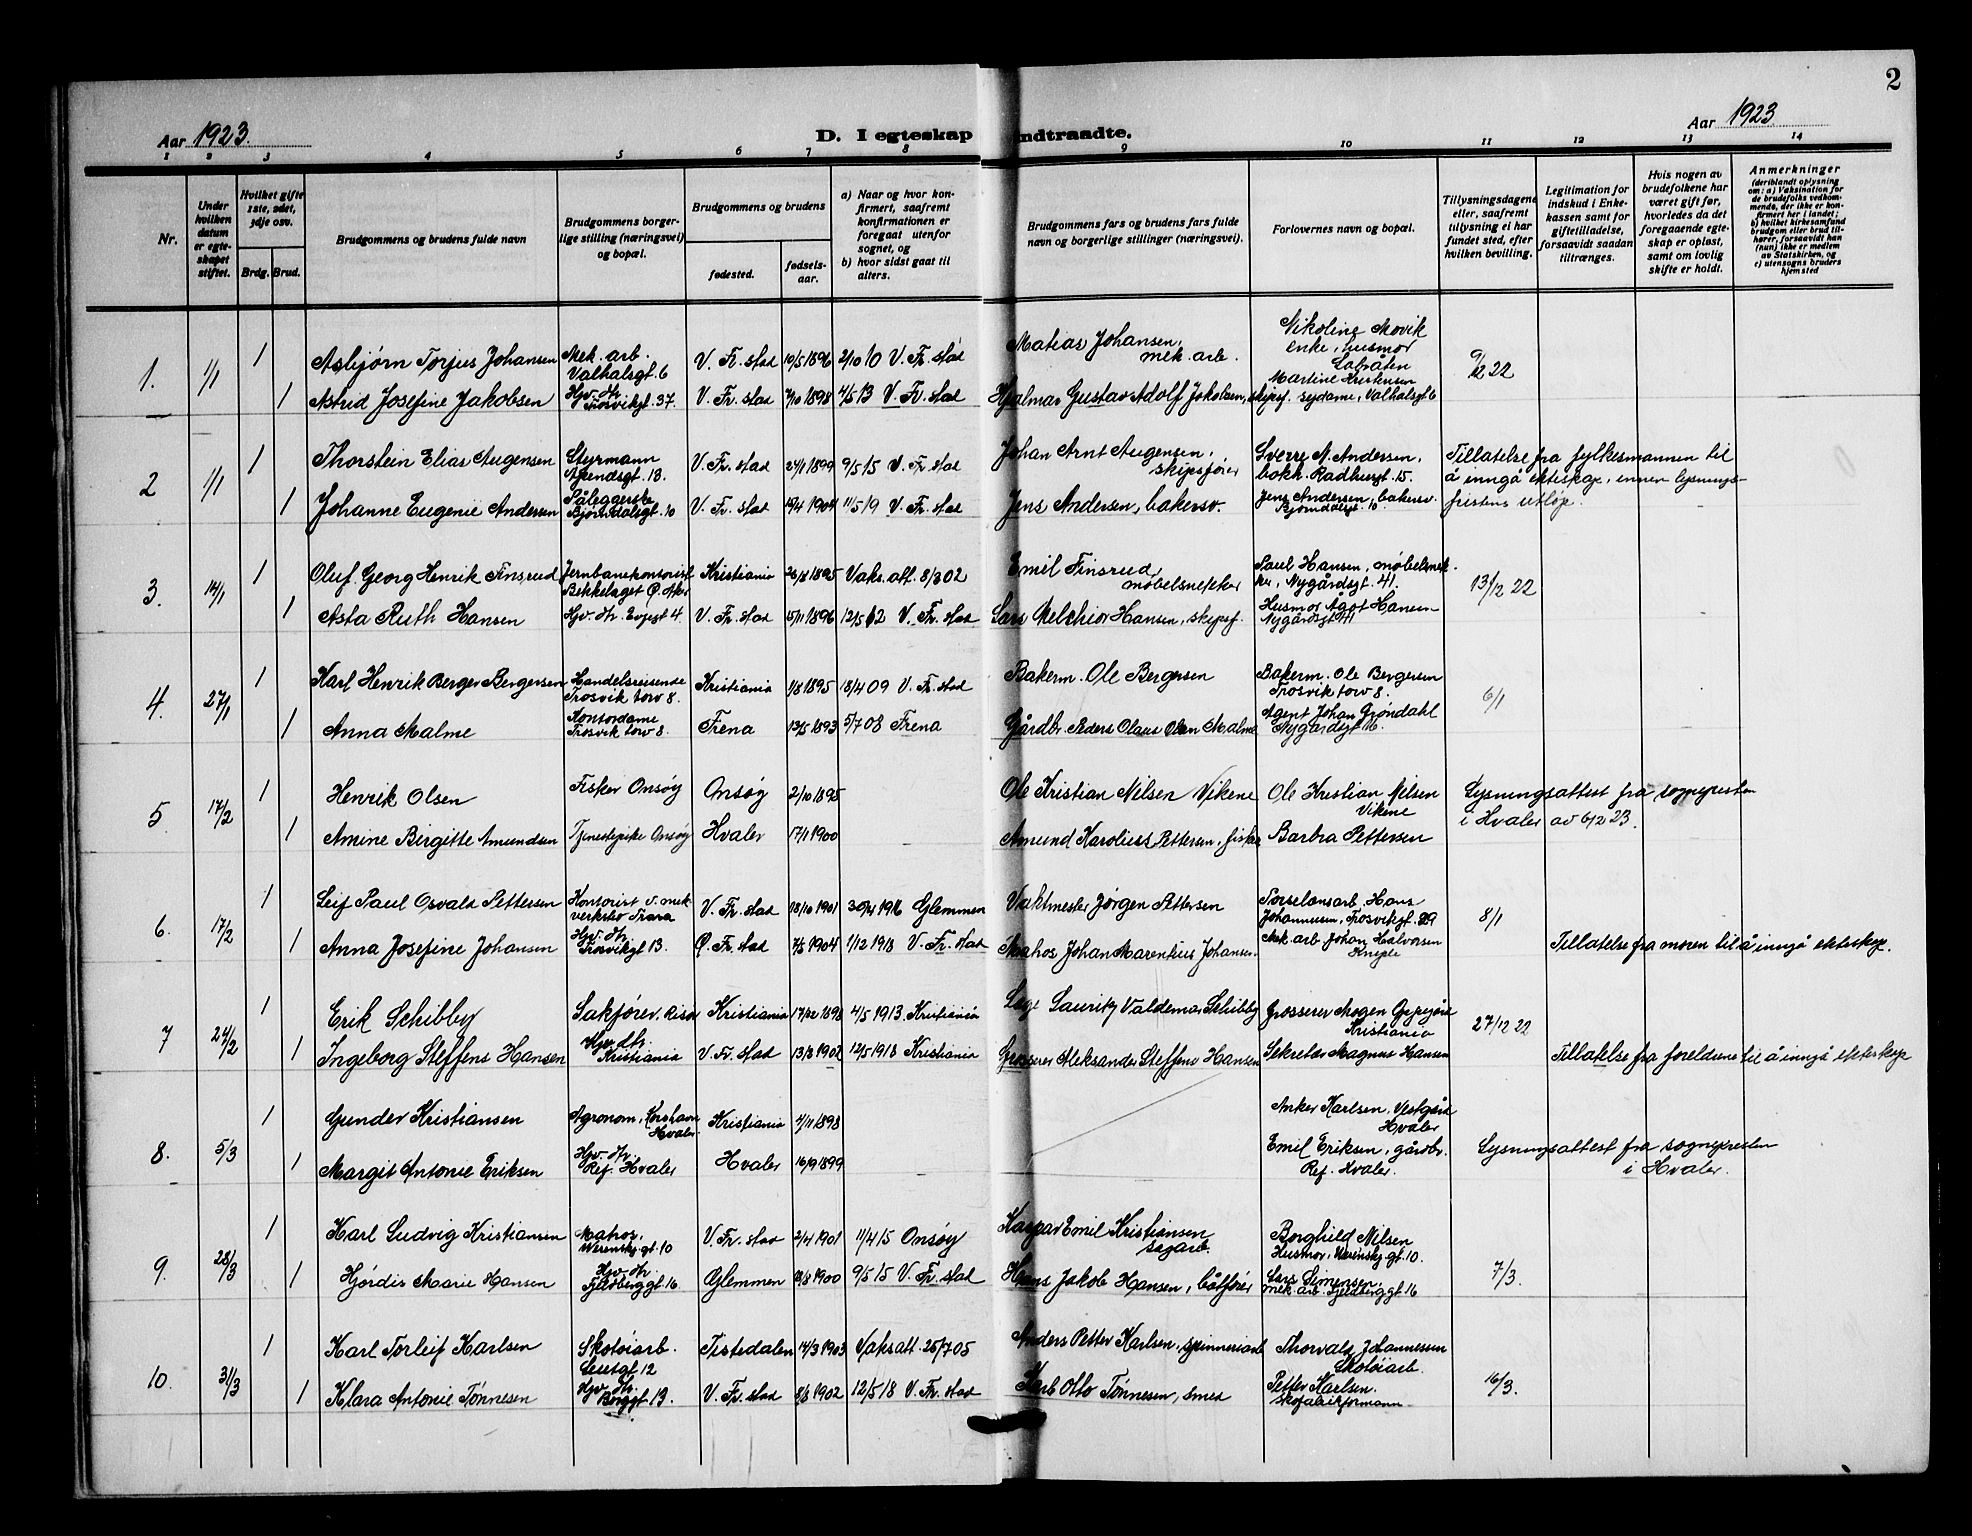 2
Aar 1923.
D. I egteskap indtraadte.
Aar 1923
1 2 3 4 5 6 7 8 9 10 11 12 13 14
Nr.
Under hvilken datum er egteskapet stiftet.
Hvilket gifte 1ste, 2det, 3dje osv.
Brdg. Brud.
Brudgommens og brudens fulde navn
Brudgommens borgerlige stilling (næringsvei) og bopæl.
Brudgommens og brudens
fødested.
fødselsaar.
a) Naar og hvor konfirmert, saafremt konfirmationen er foregaat utenfor sognet, og
b) hvor sidst gaat til alters.
Brudgommens fars og brudens fars fulde navn og borgerlige stillinger (næringsvei).
Forlovernes navn og bopæl.
Tillysningsdagene eller, saafremt tillysning ei har fundet sted, efter hvilken bevilling.
Legitimation for indskud i Enkekassen samt for giftetilladelse, forsaavidt saadan tiltrænges.
Hvis nogen av brudefolkene har været gift før, hvorledes da det foregaaende egteskap er opløst, samt om lovlig skifte er holdt.
Anmerkninger
(deriblandt oplysning om: a) Vaksination for de brudefolks vedkommende, der ikke er konfirmert her i landet; b) hvilket kirkesamfund brudgom eller brud tilhører, forsaavidt han (hun) ikke er medlem av Statskirken, og c) utensogns bruders hjemsted
1. 1/1
1 Asbjørn Torjus Johansen Mek. arb. Valhalsgt. 6 V. Fr.stad 10/5 1896 2/10 10 V. Fr.stad Matias Johansen, mek. arb. Nikoline Movik enke, husmor 9/12 22
1 Astrid Josefine Jakobsen Hjv. dtr. Trosvikgt. 37. V. Fr.stad 1898 4/5 13 V. Fr.stad Hjalmar Gustav Adolf Jakobsen, skipsf. Martine Kristensen sydame, Valhalsgt 6
2 1/1
1 Thorstein Elias Augensen Styrmann Apendsgt. 13. V. Fr.stad 24/1 1899 9/5 15 V. Fr.stad Johan Arnt Augensen, skipsfører Sverre N. Andersen, bokh. Radhusgt. 15. Tillatelse fra fylkesmannen til å inngå ekteskap, innen lysningsfristens utløp.
1 Johanne Eugenie Andersen Påleggerske 10 V. Fr.stad 1904 11/5 19 V. Fr.stad Jens Andersen, bakersv. Jens Andersen, bakersv. 10
3. 14/1
1 Oluf Georg Henrik Finsrud Jernbanekontorist Bekkelaget Ø. Aker Kristiania 26/8 1895 Vaks. att. 8/3 02 Emil Finsrud, møbelsnekker Paul Hansen, møbelsnekker, Nygårdsgt. 41. 13/12 22
1 Asta Ruth Hansen Hjv. dtr. 4. V. Fr.stad 15/11 1896 12/5 12 V. Fr.stad Lars Melchior Hansen, skipsf. Husmor Ågot Hansen Nygårdsgt 41
4. 27/1
1 Karl Henrik Berger Bergersen Handelsreisende Trosvik torv 8. Kristiania 1/8 1895 18/4 09 V. Fr.stad Bakerm. Ole Bergersen Bakerm. Ole Bergersen Trosvik torv 8. 6/1
1 Anna Malme Kontordame Trosvik torv 8. Frena 13/5 1893 5/7 08 Frena Gårdbr. Peders Olaus Olsen Malme Agent Johan Grøndahl Nygårdsgt 16.
5 17/2
1 Henrik Olsen Fisker Onsøy Onsøy 2/10 1895 Ole Kristian Nilsen Vikene Ole Kristian Nilsen Vikene Lysningsattest fra sognepresten i Hvaler av 6/2 23.
1 Amine Birgitte Amundsen Tjenestepike Onsøy Hvaler 17/1 1900 Amund Karolius Pettersen, fisker Barbra Pettersen
6. 17/2
1 Leif Paul Osvald Pettersen Kontorist v. mek verksted Trara V. Fr.stad 18/10 1901 30/4 1916 Glemmen Vaktmester Jørgen Pettersen Hans Johannesen, Trosvikgt. 29 8/1
1 Anna Josefine Johansen Hjv. dtr. Trosvikgt 13. Ø. Fr.stad 7/5 1904 1/12 1918 V. Fr.stad Matros Johan Marentius Johansen. Mek. arb Johan Halvorsen Tillatelse fra moren til å inngå ekteskap.
7 24/2
1 Erik Schibby Sakfører, Risør Kristiania 17/12 1898 4/5 1913. Kristiania Læge Lauritz Valdemar Schibby Grosserer Mogen Kristiania 27/12 22
1 Ingeborg Steffens Hansen Hjv. dtr. Kristiania V. Fr.stad 13/3 1902 12/5 1918 Kristiania Grosserer Aleksander Steffens Hansen Sekretær Magnus Hansen Tillatelse fra foreldrene til å inngå ekteskap
8. 5/3
1 Gunder Kristiansen Agronom, Korshavn Hvaler Kristiania 4/11 1898 Anker Karlsen, Vestgård Hvaler
1 Margit Antonie Eriksen Hjv. dtr. Ref. Hvaler Hvaler 16/9 1899 Emil Eriksen, gårdbr. Ref. Hvaler. Lysningsattest fra sognepresten i Hvaler.
9. 28/3
1 Karl Ludvig Kristiansen Matros, Werenskgt. 10 V. Fr.stad 2/4 1901 11/4 15 Onsøy Kaspar Emil Kristiansen sagarb. Borghild Nilsen Husmor, Werenskgt. 10. 7/3.
1 Hjördis Marie Hansen Hjv. dtr. Fjeldberggt 16 Glemmen 1900 9/5 15 V. Fr.stad Hans Jakob Hansen, båtfører Lars Simensen, mek. arb. Fjeldberggt 16
10. 31/3
1 Karl Torleif Karlsen Skotøiarb. Leusgt 12 Tistedalen 14/3 1903 Vaksatt. 25/7 05 Anders Petter Karlsen, spinneriarb Thorvald Johannessen Skotøiarb. 16/3.
1 Klara Antonie Tønnesen Hjv. dtr. Borggt 13. V. Fr.stad 8/8 1902 12/5 18 V. Fr.stad Karl Otto Tønnesen, smed Petter Karlsen. Skofabrikformann